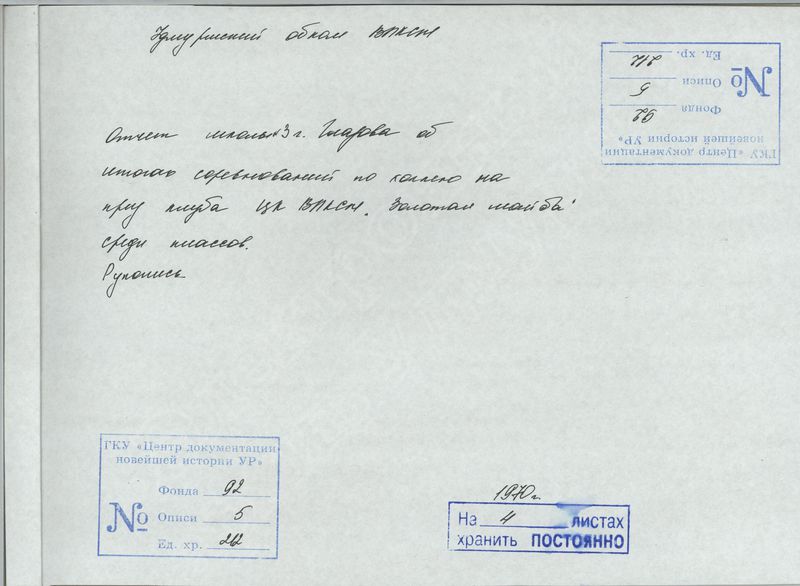 Удмуртский обком ВЛКСМ
ГКУ «Центр документации
новейшей истории УР»
Фонда 92
№ Описи 5
Ед. хр. 212
Отчет школы №3 г. Глазова об
итогах соревнований по хоккею на
приз клуба ЦК ВЛКСМ „Золотая шайба"
среди классов.
Рукопись
ГКУ «Центр документации
новейшей истории УР»
Фонда 92
№ Описи 5
Ед. хр. 212
1970г.
На 4 листах
хранить ПОСТОЯННО